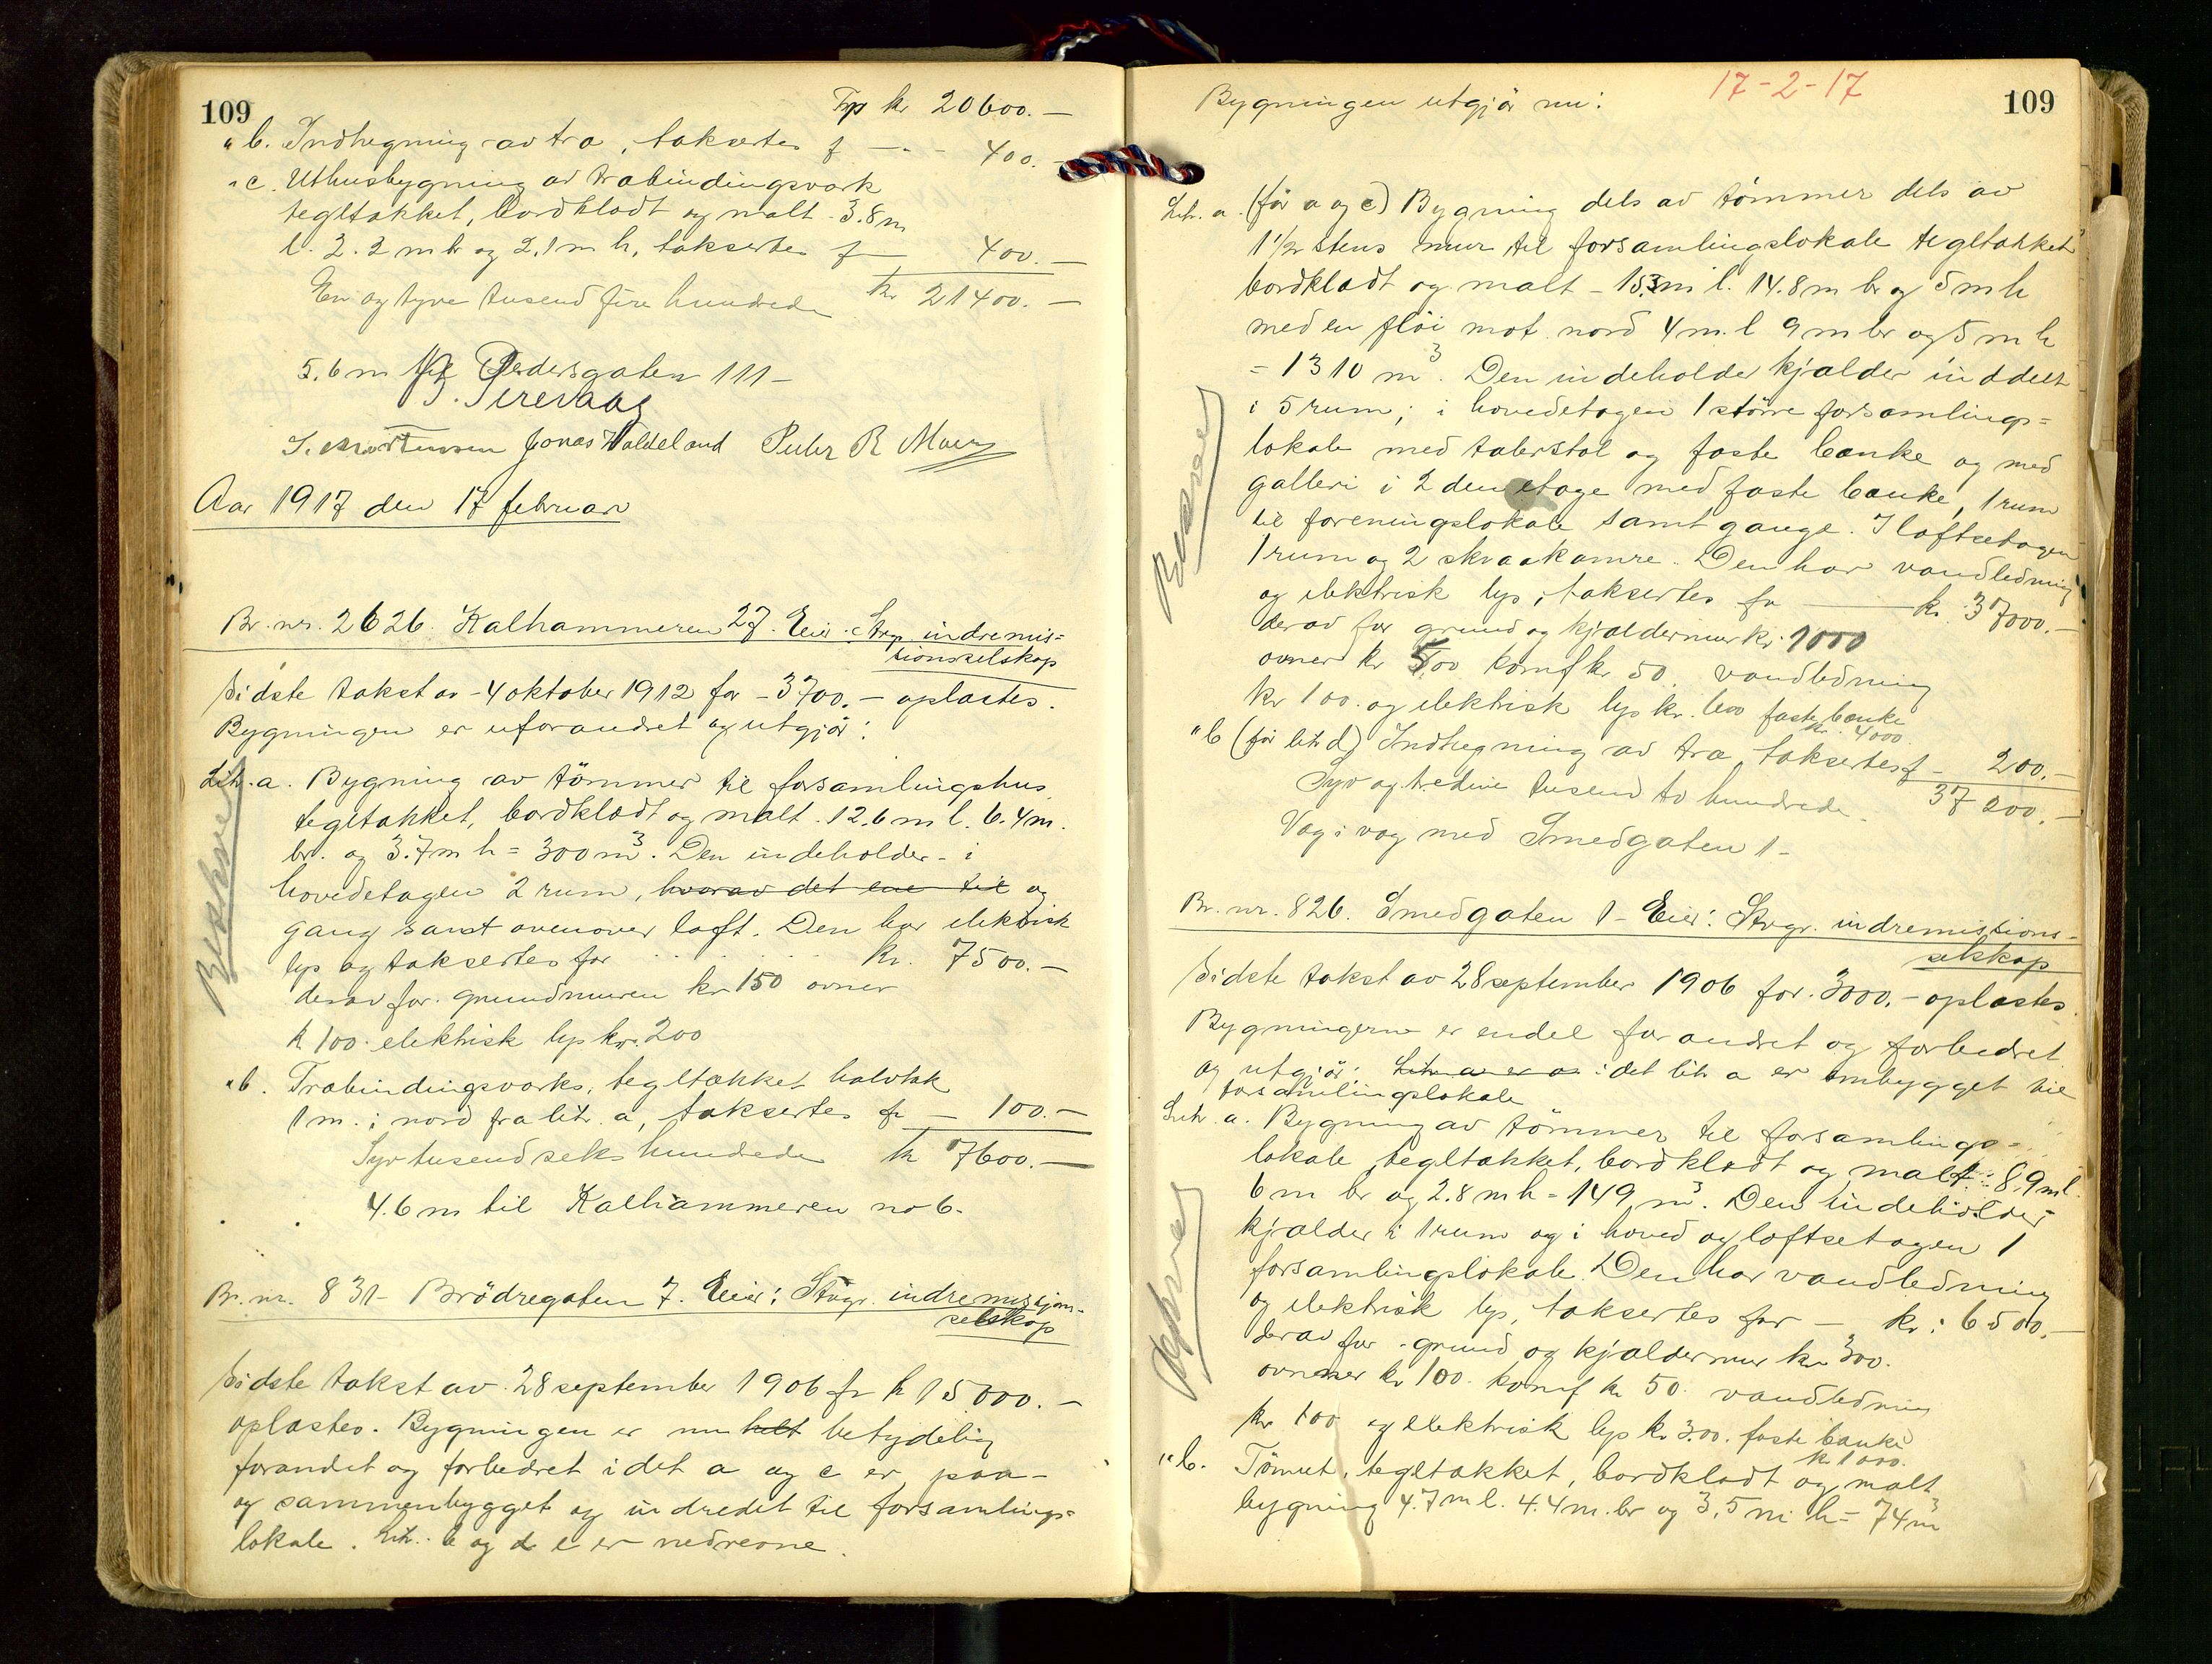 109
Trp kr 20600.—
" b. Indhegning av træ, taksertes f — - - 400.—
" c. Uthusbygning av træbindingsverk
tegltækket, bordklædt og malt. 3.8m
l. 2.2 m br og 2.1 m h, taksertes f — 400.—
En og tyve tusend fire hundrede kr 21400.—
5.6 m til Pedersgaten 111 —
S. Mortensen Jonas Waldeland Peder R Moe
Aar 1917 den 17 februar
Br. nr. 2626. Kalhammeren 27. Eier: Stvgr. indremis=
sionsselskap
Sidste takst av - 4 oktober 1912 for - 3700.- oplæstes.
Bygningen er uforandret og utgjør:
Litr. a. Bygning av tömmer til forsamlingshus
tegltækket, bordklædt og malt. 12.6 m l. 6.4 m.
br. og 3.7 m h = 300 m³. Den indeholder - i
hovedetagen 2 rum, hvorav det ene til og
gang samt ovenover loft. Den har elektrisk
lys og taksertes for . . . . . . Kr. 7500.—
derav for. grundmuren kr 150 ovner
k 100. elektrisk lys kr. 200
" b. Træbindingsverks, tegltækket halvtak
1 m. i nord fra litr. a, taksertes fr — 100.—
Syv tusend seks hundrede kr 7600.—
4.6 m til Kalhammeren no 6.
Br. nr. 831- Brödregaten 7. Eier: Stvgr. indremisjons-
selskap
Sidste takst av 28 september 1906 fr k 15000.—
oplæstes. Bygningen er nu helt betydelig
forandret og forbedret i det a og c er paa-
og sammenbygget og indredet til forsamlings=
lokale. Litr. b og d e er nedrevne.
Bekræftet
109
17-2-17
Bygningen utgjör nu:
Litr. a. (før a og c) Bygning dels av tömmer dels av
1½ stens mur til forsamlingslokale tegltækket
bordklædt og malt - 15.3 m l. 14.8 m br og 5 m h
med en flöi mot nord 4 m. l 9 m br og 5 m h
= 1310 m³. Den indeholder kjælder inddelt
i 5 rum; i hovedetagen 1 större forsamlings=
lokale med talerstol og faste bænke og med
galleri i 2 den etage med faste bænke, 1 rum
til foreningslokale samt gange. I loftsetagen
1 rum og 2 skraakamre. Den har vandledning
og elektrisk lys, taksertes for — kr. 37000.—
derav for grund og kjældermur kr. 1000
ovner kr 500 komf kr 50. vandledning
kr 100. og elektrisk lys kr. 600 faste bænke
kr. 4000.
" b (før litr d) Indhegning av træ taksertes f — 200.—
Syv og tredive tusend to hundrede. 37200.—
Væg i væg med Smedgaten 1 -
Br. nr. 826. Smedgaten 1 - Eier: Stvgr. indremissions-
selskap
Sidste takst av 28 september 1906 for. 3000.- oplæstes.
Bygningerne er endel forandret og forbedret
og utgjør: Litr a er o: idet litr a er ombygget til
forsamlingslokale
Litr. a. Bygning av tömmer til forsamlings=
lokale, tegltækket, bordklædt og malt: 8.9 m l.
6 m br og 2.8 m h = 149 m³. Den indeholder
kjælder i 1 rum og i hoved og loftsetagen 1
forsamlingslokale. Den har vandledning
og elektrisk lys, taksertes for — kr: 6500.—
derav for. grund og kjældermur kr 300.
ovner kr 100. komf kr 50. vandledning
kr 100 og elektrisk lys kr 300. faste bænke
kr 1000.
" b. Tömret, tegltækket, bordklædt og malt
bygning 4.7 m l. 4.4 m. br og 3.5 m h = 74 m³